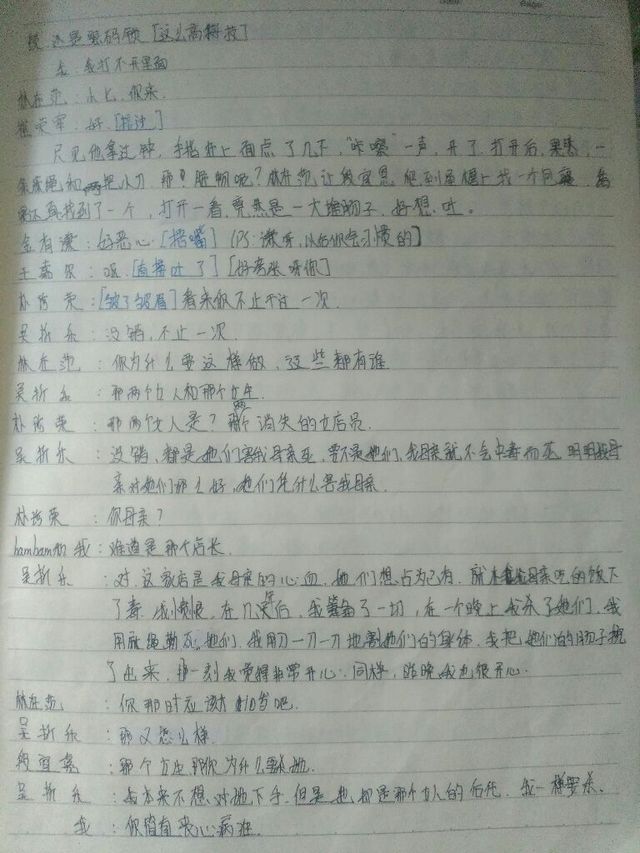 還是密码锁 [这么高科技]
我：我打不开里面
林在范：小七，你来
崔荣宰：好 [接过]
只见他拿过钟，手指在上面点了几下，"咔嚓"一声，开了，打开后，果真，一
条麻绳和两把小刀，那脏物呢？林在范让段宜恩爬到屋檐上找一个同样，
还真找到了一个，打开一看，竟然是一大堆肠子，好想吐。
金有谦：好恶心 [捂嘴] (PS：谦呀，以后你会习惯的]
王嘉尔：呕 [直接吐了] [好夸张呀你]
朴珍荣：[皱了皱眉] 看来你不止干过一次
吴折乐：没错，不止一次.
林在范：你为什么要这样做，这些都有谁
吴折乐：那两个女人和那个女生
朴珍荣：那两个女人是？那两个消失的女店员.
吴折乐：没错，都是她们害我母亲死，要不是她们，我母亲就不会中毒而死，明明我母
亲对她们那么好，她们凭什么害我母亲.
朴珍荣：你母亲？
bambam和我：难道是那个店长.
吴折乐：对，这家店是我母亲的心血，她们想占为己有，就在母亲吃的饭下
了毒，我恨，在几年后，我筹备了一切，在一个晚上我杀了她们，我
用麻绳勒死她们，我用刀一刀一刀地割她们的身体，我把她们的肠子挖
了出来，那一刻我觉得非常开心，同样，昨晚我也很开心.
林在范：你那时应该才10岁吧.
吴折乐：那又怎么样
段宜恩：那个女生那你为什么要杀她.
吴折乐：我本来不想对她下手，但是她却是那个女人的后代，我一样要杀.
我：你简直丧心病狂.